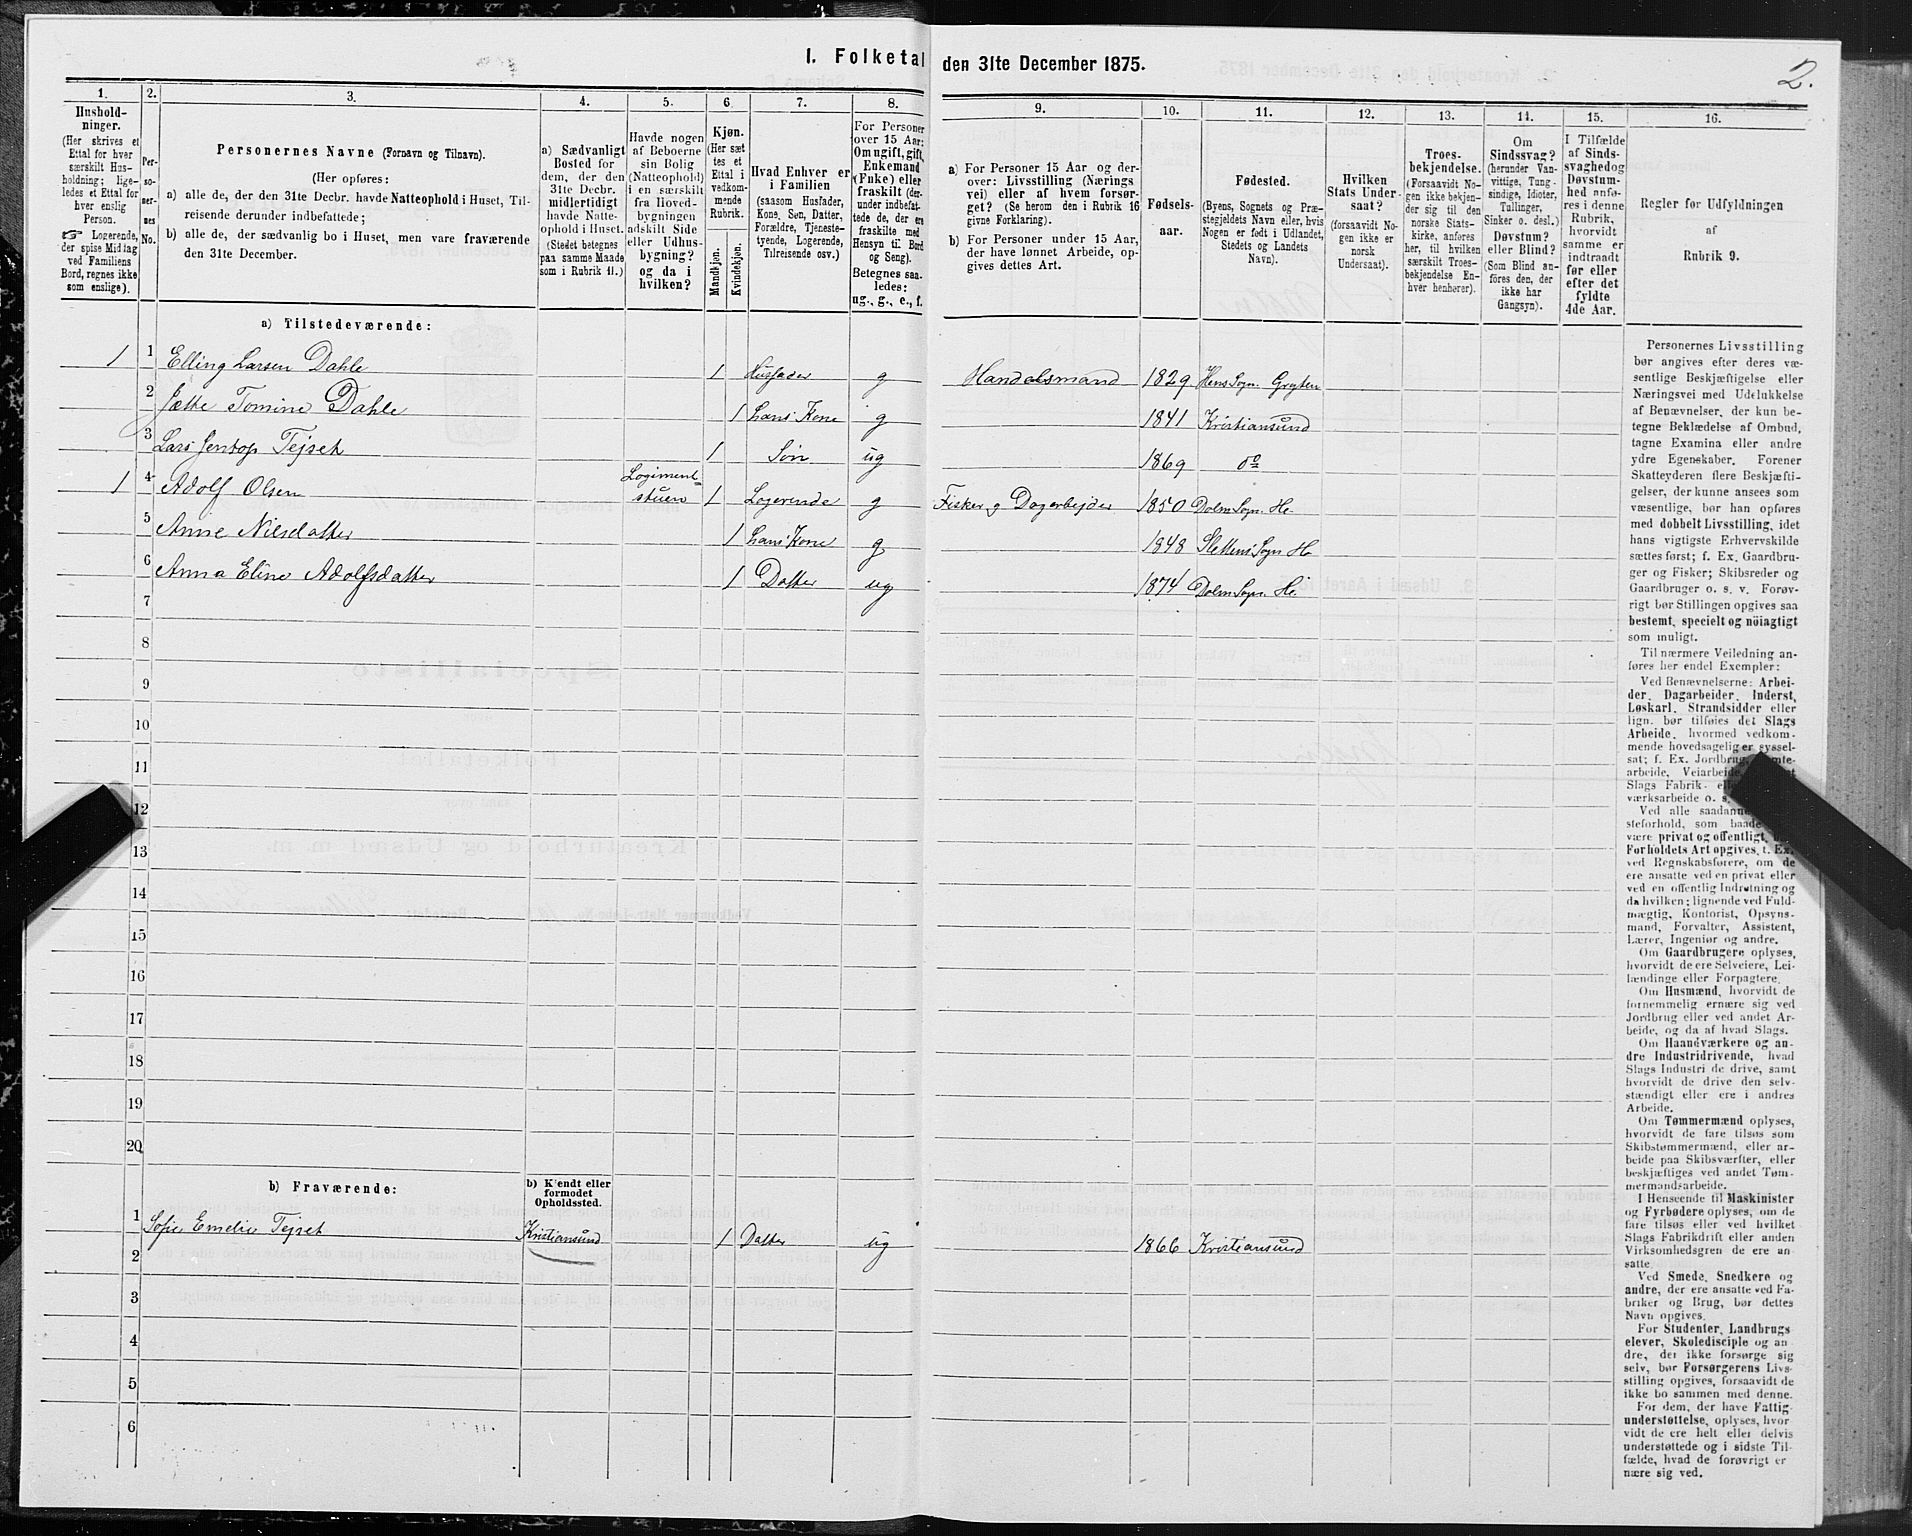 I. Folketal den 31te December 1875.
2.
1.
Hushold-
ninger.
(Her skrives et
Ettal for hver
særskilt Hus-
holdning; lige-
ledes et Ettal for
hver enslig
Person.
Logerende,
der spise Middag
ved Familiens
Bord, regnes ikke
som enslige).
2.
Per-
so-
ner-
nes
No.
3.
Personernes Navne (Fornavn og Tilnavn).
(Her opføres:
a) alle de, der den 31te Decbr. havde Natteophold i Huset, Til-
reisende derunder indbefattede;
b) alle de, der sædvanlig bo i Huset, men vare fraværende
den 31te December.
4.
a) Sædvanligt
Bosted for
dem, der den
31te Decbr.
midlertidigt
havde Natte-
ophold i Huset.
(Stedet betegnes
paa samme Maade
som i Rubrik 11.)
5.
Havde nogen
af Beboerne
sin Bolig
(Natteophold)
i en særskilt
fra Hoved-
bygningen
adskilt Side
eller Udhus-
bygning?
og da i
hvilken?
6.
Kjøn.
(Her sæt
tes et
Ettal i
vedkom-
mende
Rubrik.
Mandkjøn.
Kvindekjøn.
7.
Hvad Enhver er
i Familien
(saasom Husfader,
Kone, Søn, Datter,
Forældre, Tjeneste-
tyende, Logerende,
Tilreisende osv.)
8.
For Personer
over 15 Aar:
Om ugift, gift,
Enkemand
(Enke) eller
fraskilt (der-
under indbefat-
tede de, der ere
fraskilte med
Hensyn til Bord
og Seng).
Betegnes saa-
ledes:
ug., g., e., f.
9.
a) For Personer 15 Aar og der-
over: Livsstilling (Nærings
vei) eller af hvem forsør-
get? (Se herom den i Rubrik 16
givne Forklaring).
b) For Personer under 15 Aar,
der have lønnet Arbeide, op-
gives dettes Art.
10.
Fødsels-
aar.
11.
Fødested.
(Byens, Sognets og Præ-
stegjeldets Navn eller, hvis
Nogen er født i Udlandet,
Stedets og Landets
Navn).
12.
Hvilken
Stats Under-
saat?
(forsaavidt No-
gen ikke er
norsk
Undersaat).
13.
Troes-
bekjendelse.
(Forsaavidt No-
gen ikke bekjen-
der sig til den
norske Stats-
kirke, anføres
her, til hvilken
særskilt Troes-
bekjendelse En-
hver henhører).
14.
Om
Sindssvag?
(herunder Van-
vittige, Tung-
sindige, Idioter,
Tullinger,
Sinker o. desl.)
Døvstum?
eller Blind?
(Som Blind an-
føres den, der
ikke har
Gangsyn).
15.
I Tilfælde
af Sinds-
svaghed og
Døvstum-
hed anfø-
res i denne
Rubrik,
hvorvidt
samme er
indtraadt
før eller
efter det
fyldte
4de Aar.
16.
Regler for Udfyldningen
af
Rubrik 9.
a) Tilstedeværende:
1 1 Elling Larsen Dahle 1 Husfader g Handelsmand 1829 Hens Sogn. Gryten
2 Jætte Tomine Dahle 1 hans Kone g 1841 Kristiansund
3 Lars Jentop Tejset 1 Søn ug 1869 do
1 4 Adolf Olsen Logiment-
stuen 1 Logerende g Fisker og Dagarbejder 1850 Dolm Sogn. He.
5 Anne Nilsdatter 1 hans Kone g 1848 Slettens Sogn He
6 Anna Eline Adolfsdatter 1 Datter ug 1874 Dolm Sogn. He.
7
8
9
10
11
12
13
14
15
16
17
18
19
20
b) Fraværende:
b) Kjendt eller
formodet
Opholdssted.
1 Sofie Emelie Tejset Kristiansund 1 Datter ug 1866 Kristiansund
2
3
4
5
6
Personernes Livsstilling
bør angives efter deres væ-
sentlige Beskjæftigelse eller
Næringsvei med Udelukkelse
af Benævnelser, der kun be-
tegne Beklædelse af Ombud,
tagne Examina eller andre
ydre Egenskaber. Forener
Skatteyderen flere Beskjæfti-
gelser, der kunne ansees som
væsentlige, bør han opføres
med dobbelt Livsstilling, idet
hans vigtigste Erhvervskilde
sættes først; f. Ex. Gaardbru-
ger og Fisker; Skibsreder og
Gaardbruger o. s. v. Forøv-
rigt bør Stillingen opgives saa
bestemt, specielt og nöiagtigt
som muligt.
Til nærmere Veiledning an-
føres her endel Exempler:
Ved Benævnelserne: Arbei-
der, Dagarbeider, Inderst,
Løskarl, Strandsidder eller
lign. bør tilføies det Slags
Arbeide, hvormed vedkom-
mende hovedsagelig er syssel-
sat; f. Ex. Jordbrug,
arbeide, Veiarbeide,
Slags Fabrik-
værksarbeide o. s.
Ved alle saadanne
steforhold, som baade
være privat og offentligt,
Forholdets Art opgives, t. Ex.
ved Regnskabsførere, om de
ere ansatte ved en privat eller
ved en offentlig Indretning og
da hvilken; lignende ved Fuld-
mægtig, Kontorist, Opsyns-
mand, Forvalter, Assistent,
Lærer, Ingeniør og andre.
Om Gaardbrugere oplyses,
hvorvidt de ere Selveiere, Lei-
lændinge eller Forpagtere.
Om Husmænd, hvorvidt de
fornemmelig ernære sig ved
Jordbrug eller ved andet Ar-
beide, og da af hvad Slags.
Om Haandværkere og an-
dre Industridrivende, hvad
Slags Industri de drive, samt
hvorvidt de drive den selv-
stændigt eller ere i andres
Arbeide.
Om Tømmermænd oplyses,
hvorvidt de fare tilsøs som
Skibstømmermænd, eller ar-
beide paa Skibsværfter, eller
beskjæftiges ved andet Tøm-
mermandsarbeide.
I Henseende til Maskinister
og Fyrbødere oplyses, om de
fare tilsøs eller ved hvilket
Slags Fabrikdrift eller anden
Virksomhedsgren de ere an-
satte.
Ved Smede, Snedkere og
andre, der ere ansatte ved Fa-
briker og Brug, bør dettes
Navn opgives.
For Studenter, Landbrugs
elever, Skoledisciple og an-
dre, der ikke forsørge sig
selv, bør Forsørgerens Livs-
stilling opgives, forsaavidt de
ikke bo sammen med denne.
For dem, der have Fattig-
understøttelse, oplyses, hvor-
vidt de ere helt eller delvis
understøttede og i sidste Til-
fælde, hvad de forøvrigt er
nære sig ved.